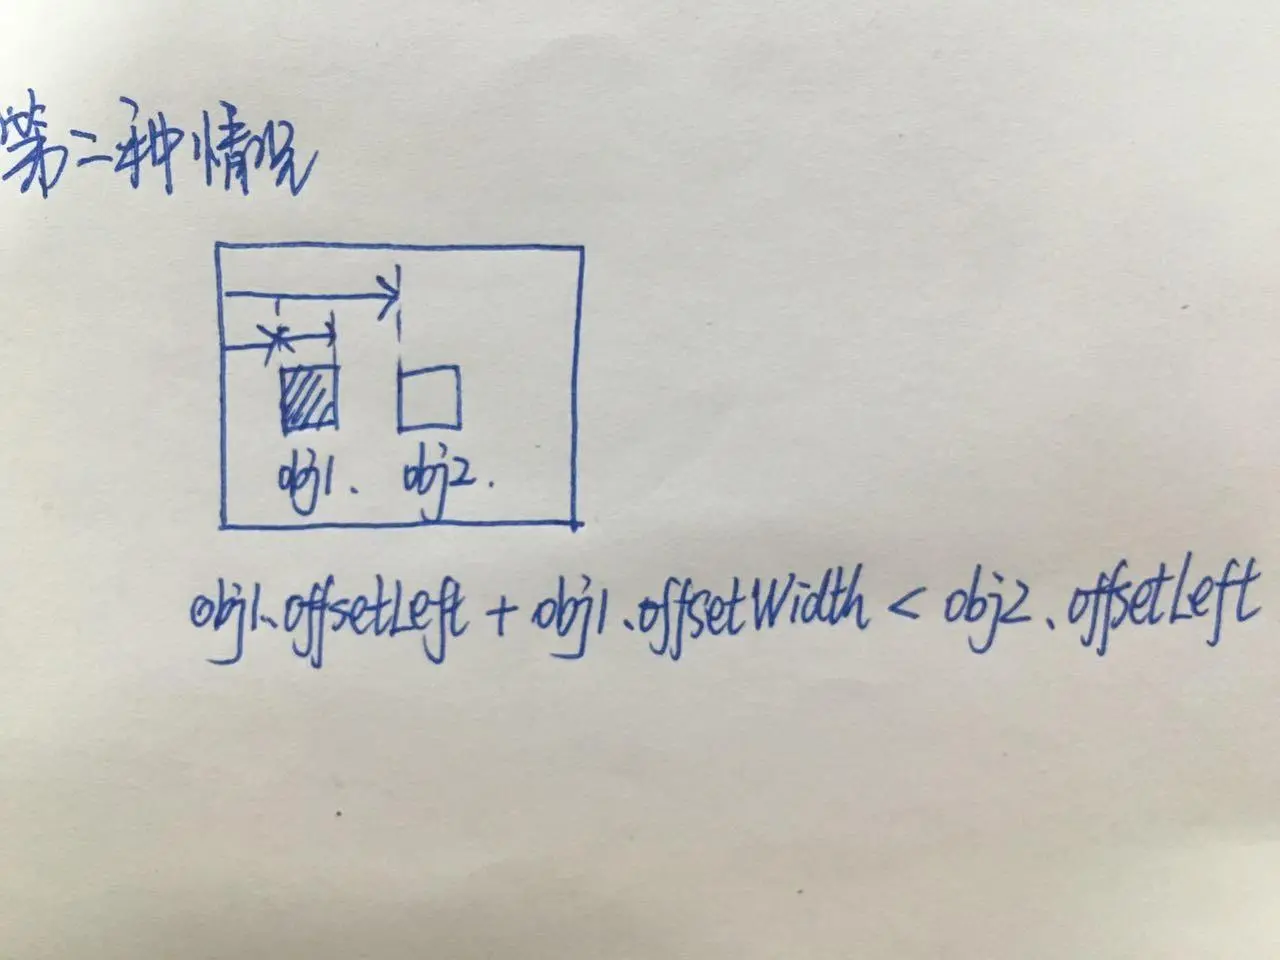 第二种情况
obj1. obj2.
obj1.offsetLeft + obj1.offsetWidth < obj2.offsetLeft